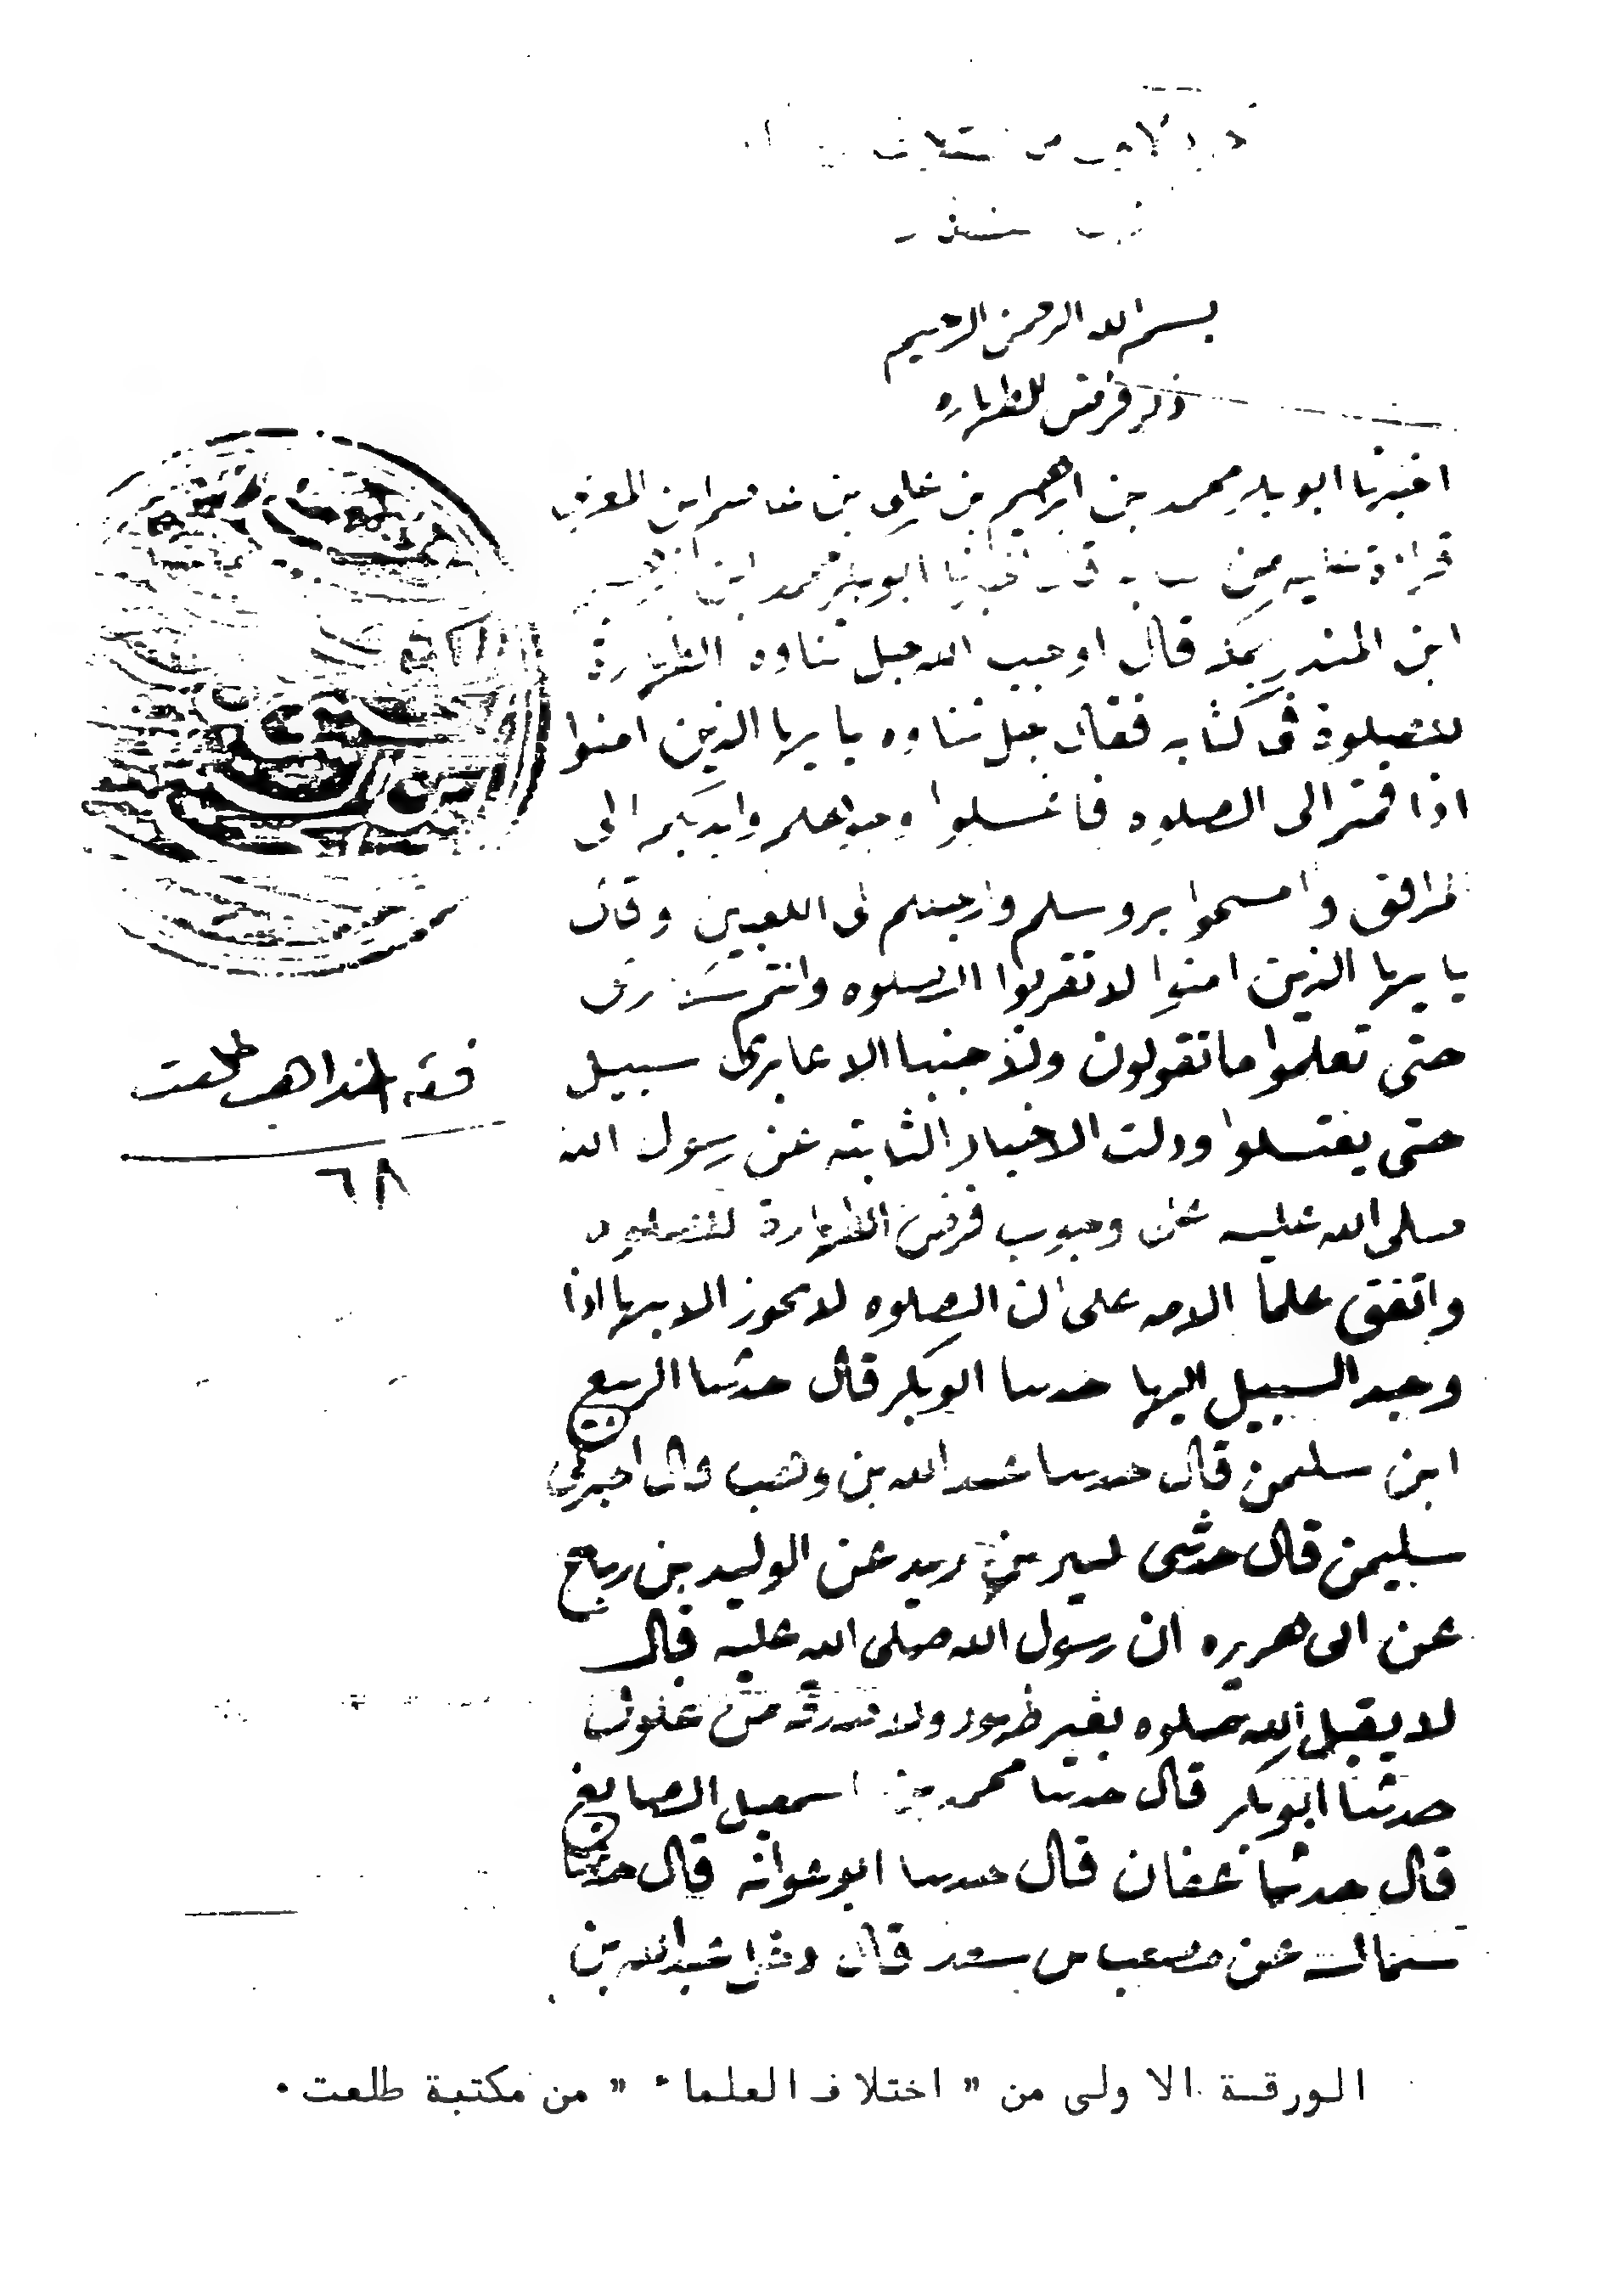 بسم الله الرحمن الرحيم
ذكر فرض الطهاره
اخبرنا ابو بكر محمد بن ابرهيم بن علي بن عاصم ابن المقري
قراءة عليه من كتابه قال اخبرنا ابو بكر محمد ابن ابرهيم
ابن المنذر بمكة قال اوجب الله جل ثناوه الطهارة
للصلوة في كتابه فقال جل ثناوه يا يها الذين امنوا
اذا قمتم الى الصلوه فاغسلوا وجوهكم وايديكم الى
المرافق وامسحوا بروسكم وارجلكم الى الكعبين وقال
يا يها الذين امنوا لا تقربوا الصلوه وانتم سكارى
حتى تعلموا ما تقولون ولا جنبا الا عابرى سبيل
حتى يغتسلوا ودلت الاخبار الثابته عن رسول الله
صلى الله عليه على وجوب فرض الطهارة للصلوه
واتفق علما الامه على ان الصلوه لا تجوز الا بها اذا
وجد السبيل اليها حدثنا ابو بكر قال حدثنا الربيع
ابن سليمن قال حدثنا عبد الله بن وهب قال اخبرني
سليمن قال حدثني كثير بن زيد عن الوليد بن رباح
عن ابى هريره ان رسول الله صلى الله عليه قال
لا يقبل الله صلوه بغير طهور ولا صدقة من غلول
حدثنا ابو بكر قال حدثنا محمد بن اسمعيل الصايغ
قال حدثنا عفان قال حدثنا ابو عوانه قال حدثنا
سماك عن مصعب بن سعد قال دخل عبد الله بن
فقه المذاهب طلعت
٦٨
الورقة الاولى من " اختلاف العلماء " من مكتبة طلعت .